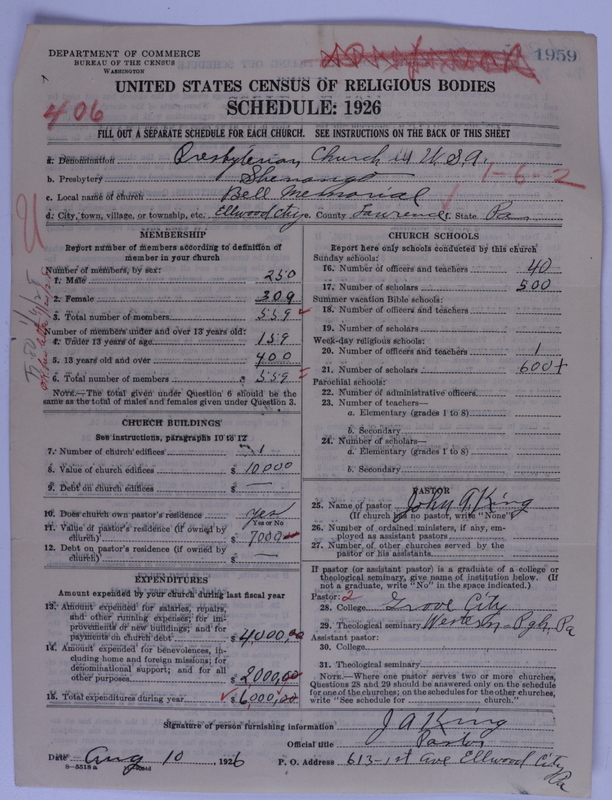 DEPARTMENT OF COMMERCE
BUREAU OF THE CENSUS
WASHINGTON
1959
UNITED STATES CENSUS OF RELIGIOUS BODIES
SCHEDULE: 1926
406
FILL OUT A SEPARATE SCHEDULE FOR EACH CHURCH. SEE INSTRUCTIONS ON THE BACK OF THIS SHEET
a. Denomination Presbyterian Church in U.S.A.
b. Presbytery Shenango
1-6-2
c. Local name of church Bell Memorial
d. City, town, village, or township, etc. Ellwood City County Lawrence State Pa
MEMBERSHIP
Report number of members according to definition of
member in your church
Number of members, by sex:
1. Male 250
2. Female 309
3. Total number of members 559
Number of members under and over 13 years old:
4. Under 13 years of age 159
5. 13 years old and over 400
6. Total number of members 559
NOTE.—The total given under Question 6 should be the
same as the total of males and females given under Question 3.
CHURCH BUILDINGS
See instructions, paragraphs 10 to 12
7. Number of church edifices 1
8. Value of church edifices $ 10000
9. Debt on church edifices $ —
10. Does church own pastor's residence yes
Yes or No
11. Value of pastor's residence (if owned by
church) $ 7000
12. Debt on pastor's residence (if owned by
church) $ —
EXPENDITURES
Amount expended by your church during last fiscal year
13. Amount expended for salaries, repairs,
and other running expenses; for im-
provements or new buildings; and for
payments on church debt $ 4000,00
14. Amount expended for benevolences, in-
cluding home and foreign missions; for
denominational support; and for all
other purposes $ 2000,00
15. Total expenditures during year $ 6000,00
CHURCH SCHOOLS
Report here only schools conducted by this church
Sunday schools:
16. Number of officers and teachers 40
17. Number of scholars 500
Summer vacation Bible schools:
18. Number of officers and teachers
19. Number of scholars
Week-day religious schools:
20. Number of officers and teachers 1
21. Number of scholars 600+
Parochial schools:
22. Number of administrative officers
23. Number of teachers—
a. Elementary (grades 1 to 8)
b. Secondary
24. Number of scholars—
a. Elementary (grades 1 to 8)
b. Secondary
PASTOR
25. Name of pastor John A. King
(If church has no pastor, write "None")
26. Number of ordained ministers, if any, em-
ployed as assistant pastors
27. Number of other churches served by the
pastor or his assistants
If pastor (or assistant pastor) is a graduate of a college or
theological seminary, give name of institution below. (If
not a graduate, write "No" in the space indicated.)
Pastor: 2
28. College Grove City
29. Theological seminary Western - Pgh, Pa
Assistant pastor:
30. College
31. Theological seminary
NOTE.—Where one pastor serves two or more churches,
Questions 28 and 29 should be answered only on the schedule
for one of the churches; on the schedules for the other churches,
write "See schedule for church."
Signature of person furnishing information J A King
Official title Pastor
Date Aug 10, 1926 P. O. Address 613-1st Ave Ellwood City
Pa
8-5518 a